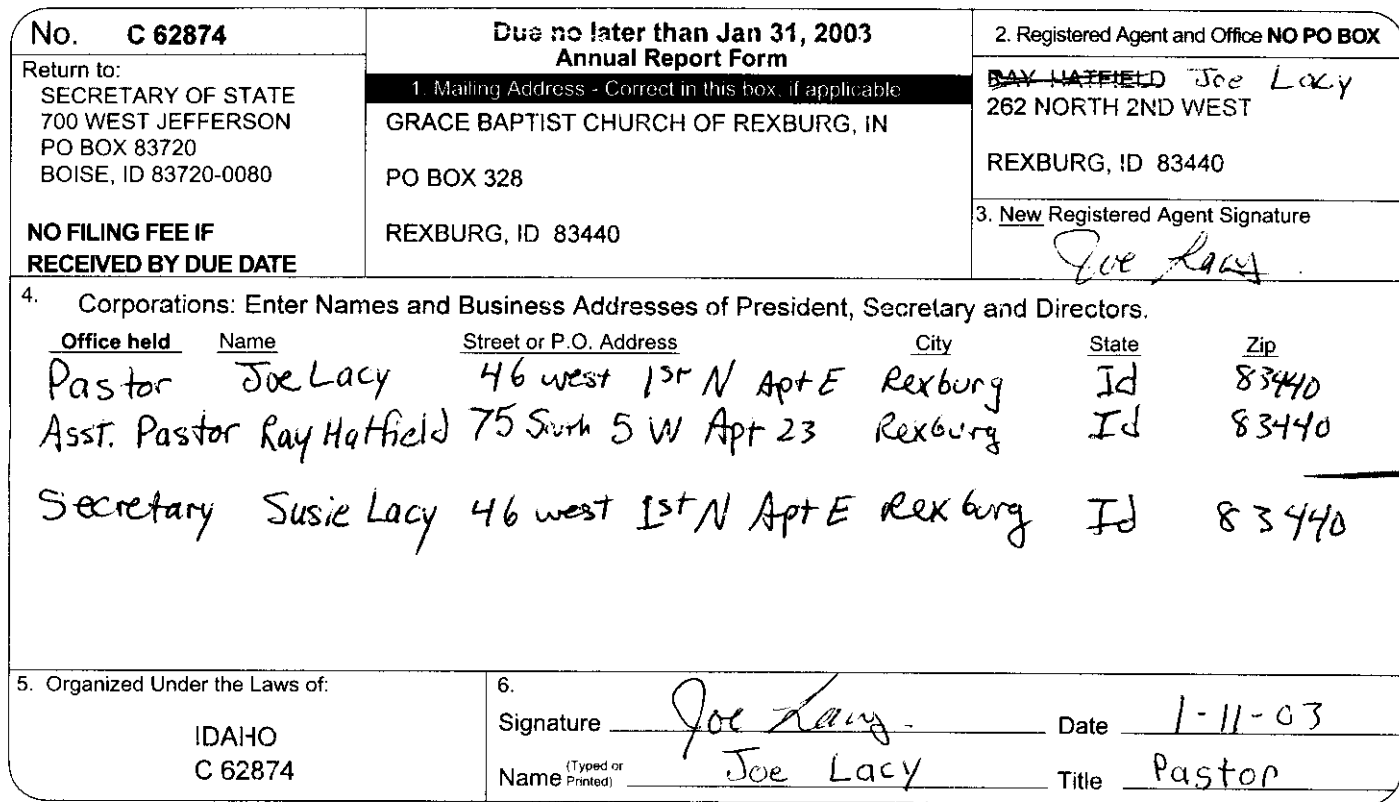 No. C 62874
Return to:
SECRETARY OF STATE
700 WEST JEFFERSON
PO BOX 83720
BOISE, ID 83720-0080
NO FILING FEE IF
RECEIVED BY DUE DATE
Due no later than Jan 31, 2003
Annual Report Form
1. Mailing Address - Correct in this box, if applicable
GRACE BAPTIST CHURCH OF REXBURG, IN
PO BOX 328
REXBURG, ID 83440
2. Registered Agent and Office NO PO BOX
RAY HATFIELD Joe Lacy
262 NORTH 2ND WEST
REXBURG, ID 83440
3. New Registered Agent Signature
Joe Lacy
4. Corporations: Enter Names and Business Addresses of President, Secretary and Directors.
Office held Name Street or P.O. Address City State Zip
Pastor Joe Lacy 46 west 1st N Apt E Rexburg Id 83440
Asst. Pastor Ray Hatfield 75 South 5 W Apt 23 Rexburg Id 83440
Secretary Susie Lacy 46 west 1st N Apt E Rexburg Id 83440
5. Organized Under the Laws of:
IDAHO
C 62874
6.
Signature Joe Lacy Date 1-11-03
Name (Typed or Printed) Joe Lacy Title Pastor